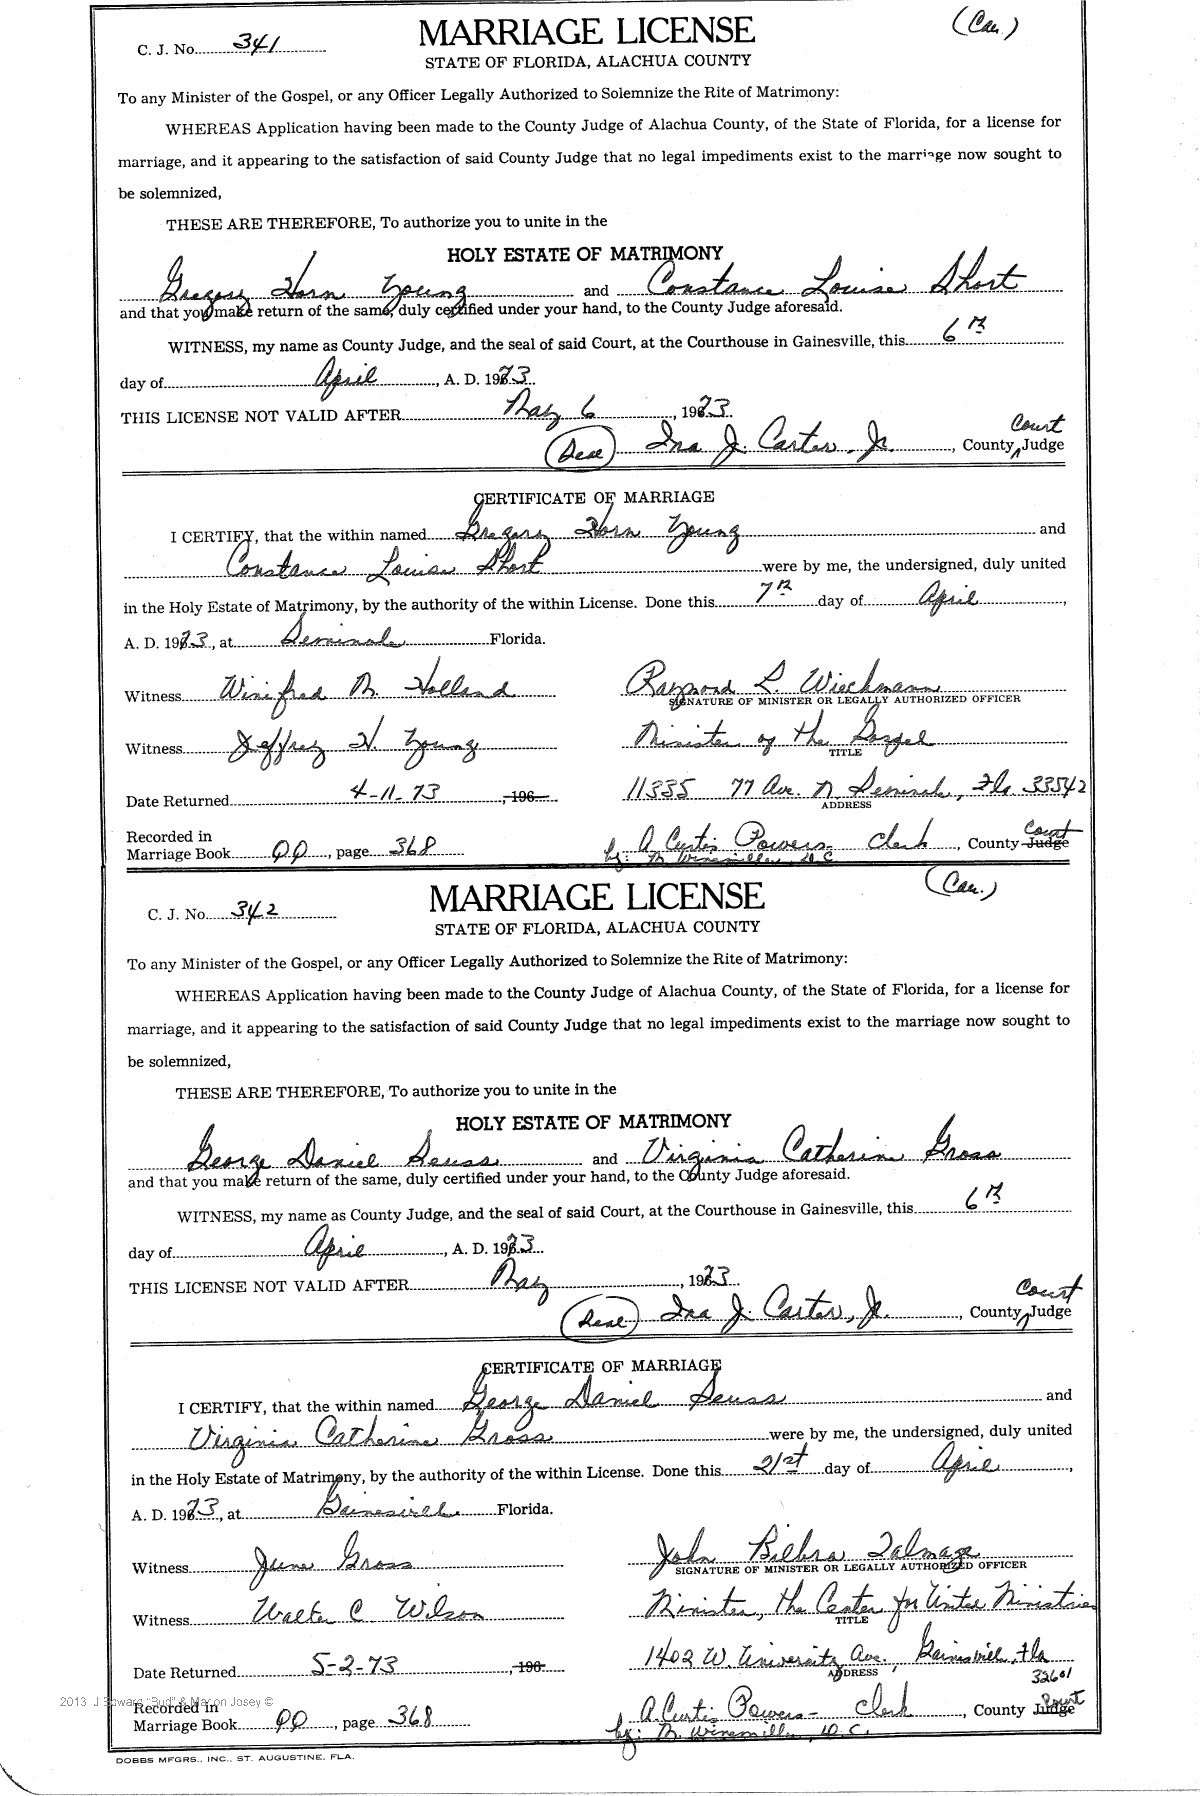 (Cau.)
C. J. No. 341
MARRIAGE LICENSE
STATE OF FLORIDA, ALACHUA COUNTY
To any Minister of the Gospel, or any Officer Legally Authorized to Solemnize the Rite of Matrimony:
WHEREAS Application having been made to the County Judge of Alachua County, of the State of Florida, for a license for
marriage, and it appearing to the satisfaction of said County Judge that no legal impediments exist to the marriage now sought to
be solemnized,
THESE ARE THEREFORE, To authorize you to unite in the
HOLY ESTATE OF MATRIMONY
Gregory Horn Young and Constance Louise Short
and that you make return of the same, duly certified under your hand, to the County Judge aforesaid.
WITNESS, my name as County Judge, and the seal of said Court, at the Courthouse in Gainesville, this 6th
day of April, A. D. 1973
THIS LICENSE NOT VALID AFTER May 6, 1973
Court
(Seal) Ira J. Carter, Jr., County Judge
CERTIFICATE OF MARRIAGE
I CERTIFY, that the within named Gregory Horn Young and
Constance Louise Short were by me, the undersigned, duly united
in the Holy Estate of Matrimony, by the authority of the within License. Done this 7th day of April,
A. D. 1973, at Seminole Florida.
Witness Winifred M. Holland Raymond L. Wieckmann
SIGNATURE OF MINISTER OR LEGALLY AUTHORIZED OFFICER
Witness Jeffrey H. Young Minister of the Gospel
TITLE
Date Returned 4-11-73, 196 11335 77 Ave. N. Seminole, Fla. 33542
ADDRESS
Recorded in Court
Marriage Book QQ, page 368 A Curtis Powers- Clerk, County Judge
by: M. Winesmiller D.C.
(Cau.)
C. J. No. 342
MARRIAGE LICENSE
STATE OF FLORIDA, ALACHUA COUNTY
To any Minister of the Gospel, or any Officer Legally Authorized to Solemnize the Rite of Matrimony:
WHEREAS Application having been made to the County Judge of Alachua County, of the State of Florida, for a license for
marriage, and it appearing to the satisfaction of said County Judge that no legal impediments exist to the marriage now sought to
be solemnized,
THESE ARE THEREFORE, To authorize you to unite in the
HOLY ESTATE OF MATRIMONY
George Daniel Seuss and Virginia Catherine Gross
and that you make return of the same, duly certified under your hand, to the County Judge aforesaid.
WITNESS, my name as County Judge, and the seal of said Court, at the Courthouse in Gainesville, this 6th
day of April, A. D. 1973
THIS LICENSE NOT VALID AFTER May, 1973
Court
(Seal) Ira J. Carter, Jr., County Judge
CERTIFICATE OF MARRIAGE
I CERTIFY, that the within named George Daniel Seuss and
Virginia Catherine Gross were by me, the undersigned, duly united
in the Holy Estate of Matrimony, by the authority of the within License. Done this 21st day of April,
A. D. 1973, at Gainesville Florida.
Witness June Gross John Bilbro Talmage
SIGNATURE OF MINISTER OR LEGALLY AUTHORIZED OFFICER
Witness Walter C Wilson Minister, the Center for United Ministries
TITLE
Date Returned 5-2-73, 196 1402 W. University Ave., Gainesville, Fla
ADDRESS 32601
2013 J Edward "Bud" & Marion Josey ©
Recorded in Court
Marriage Book QQ, page 368 A. Curtis Powers- Clerk, County Judge
by: M. Winesmiller, D.C.
DOBBS MFGRS., INC., ST. AUGUSTINE, FLA.